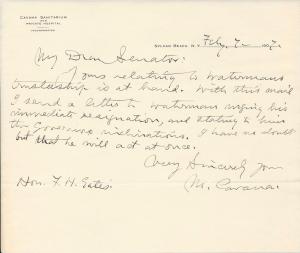 CAVANA SANITARIUM
AND
PRIVATE HOSPITAL
INCORPORATED
SYLVAN BEACH, N.Y. Feby. 7 190
My Dear Senator:
Yours relating to Watermans
trusteeship is at hand. With this mail
I send a letter to Waterman urging his
immediate resignation, and stating to him
the Governors inclinations. I have no doubt
but that he will act at once.
Very Sincerely Yours
M. Cavana.
Hon. F. H. Gates.